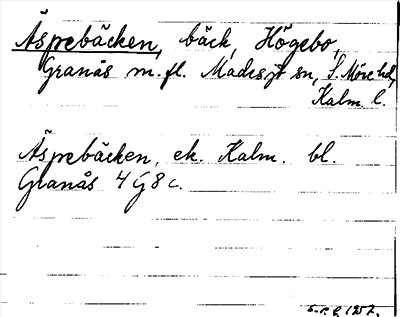 Äspebäcken, bäck, Högebo,
Granås m.fl. Madesjö sn, S. Möre hd,
Kalm. l.
Äspebäcken, ek. Kalm. bl.
Granås 4G8c.
1957.